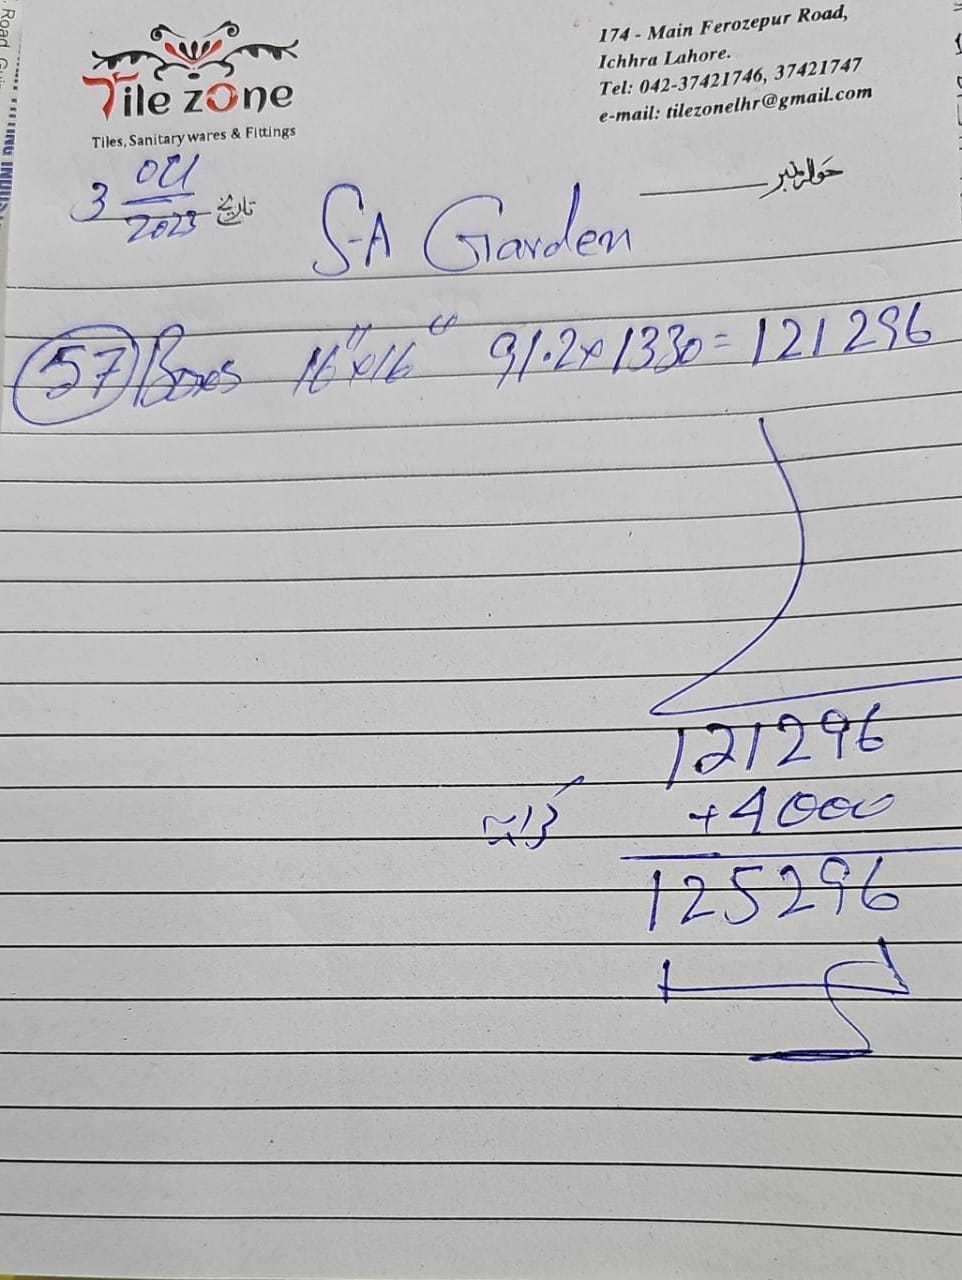 Tile zone
Tiles, Sanitary wares & Fittings
174 - Main Ferozepur Road,
Ichhra Lahore.
Tel: 042-37421746, 37421747
e-mail: tilezonelhr@gmail.com
حوالہ نمبر
3 Oct 2023 تاریخ
S-A Garden
57 Boxes 16"x16" 91.2x1330=121296
121296
کرایہ +4000
125296